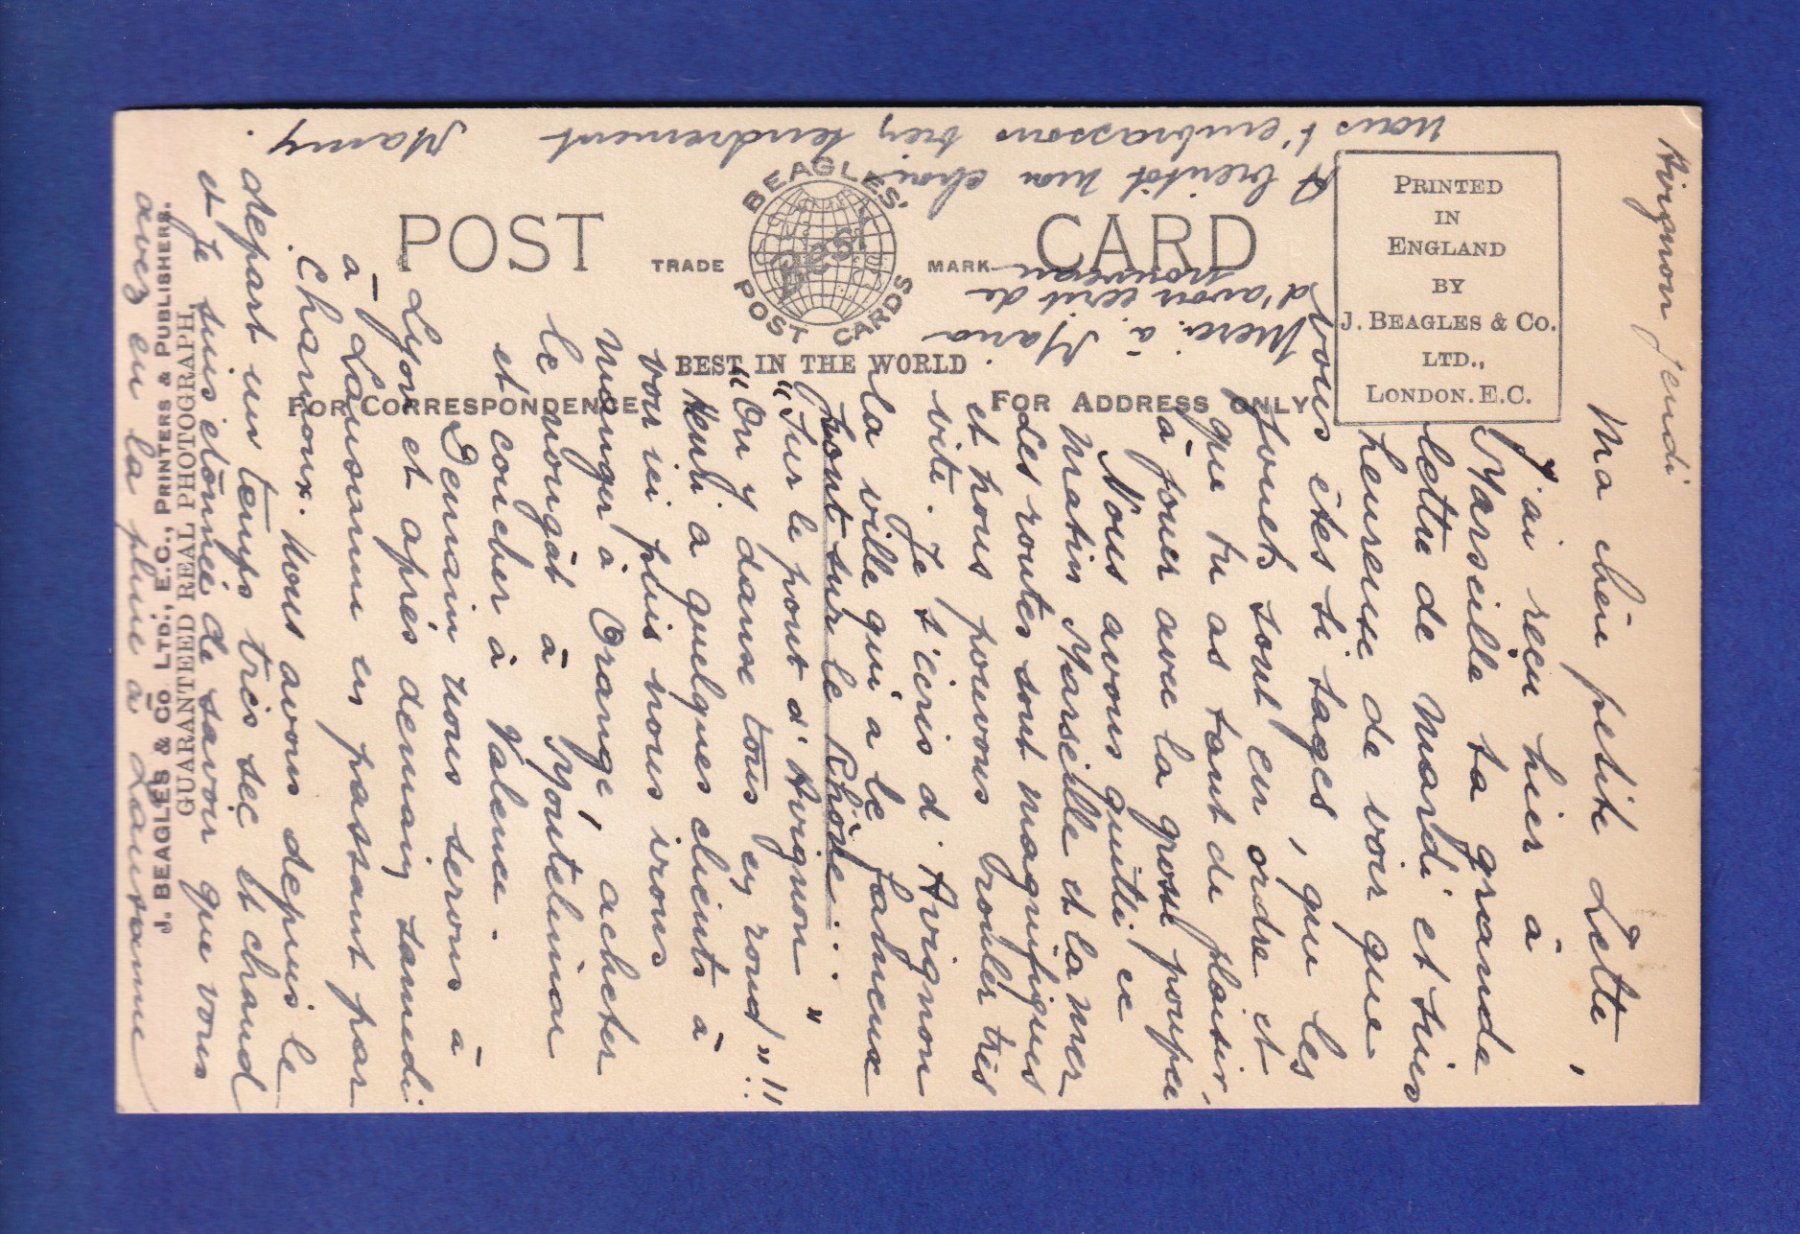 POST CARD
BEAGLES'
POST CARDS
TRADE MARK
BEST IN THE WORLD
FOR CORRESPONDENCE
FOR ADDRESS ONLY
PRINTED
IN
ENGLAND
BY
J. BEAGLES & Co.
LTD.,
LONDON. E.C.
J. BEAGLES & Co. LTD., E.C., PRINTERS & PUBLISHERS.
GUARANTEED REAL PHOTOGRAPH,
Avignon Jeudi
Ma chère petite Lette,
J'ai reçu hier à
Marseille ta grande
lettre de mardi et suis
heureuse de voir que
vous êtes si sages, que les
jouets sont en ordre et
que tu as tant de plaisir
à jouer avec la grosse poupée
Nous avons quitté ce
matin Marseille et la mer
Les routes sont magnifiques
et nous pouvons brouler très
vite. Je t'écris d'Avignon
la ville qui a le fameux
pont sur le Rhône...
"Sur le pont d'Avignon"
"On y danse tous en rond"!!
Henli a quelques clients à
voir ici puis nous irons
manger à Orange, acheter
le nougat à Montélimar
et coucher à Valence.
Demain nous serons à
Lyon et après demain samedi
à Lausanne en passant par
Charnoux. Nous avons depuis le
départ un temps très sec et chaud
et je suis étonnée de savoir que vous
avez eu la pluie à Lausanne
Merci à Maria
d'avoir écrit de
nouveau
A bientôt mon chou.
nous t'embrassons bien tendrement
Mamy.